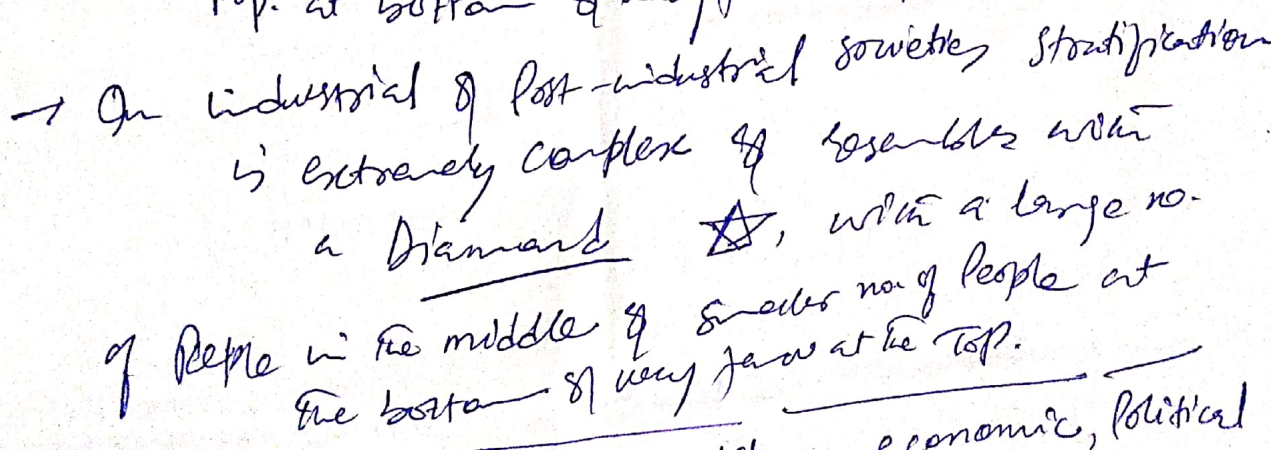 Pop. at bottom of
→ In industrial & Post-industrial societies stratification
is extremely complex & resembles with
a Diamond ☆, with a large no.
of People in the middle & smaller no. of People at
the bottom & very few at the Top.
economic, Political